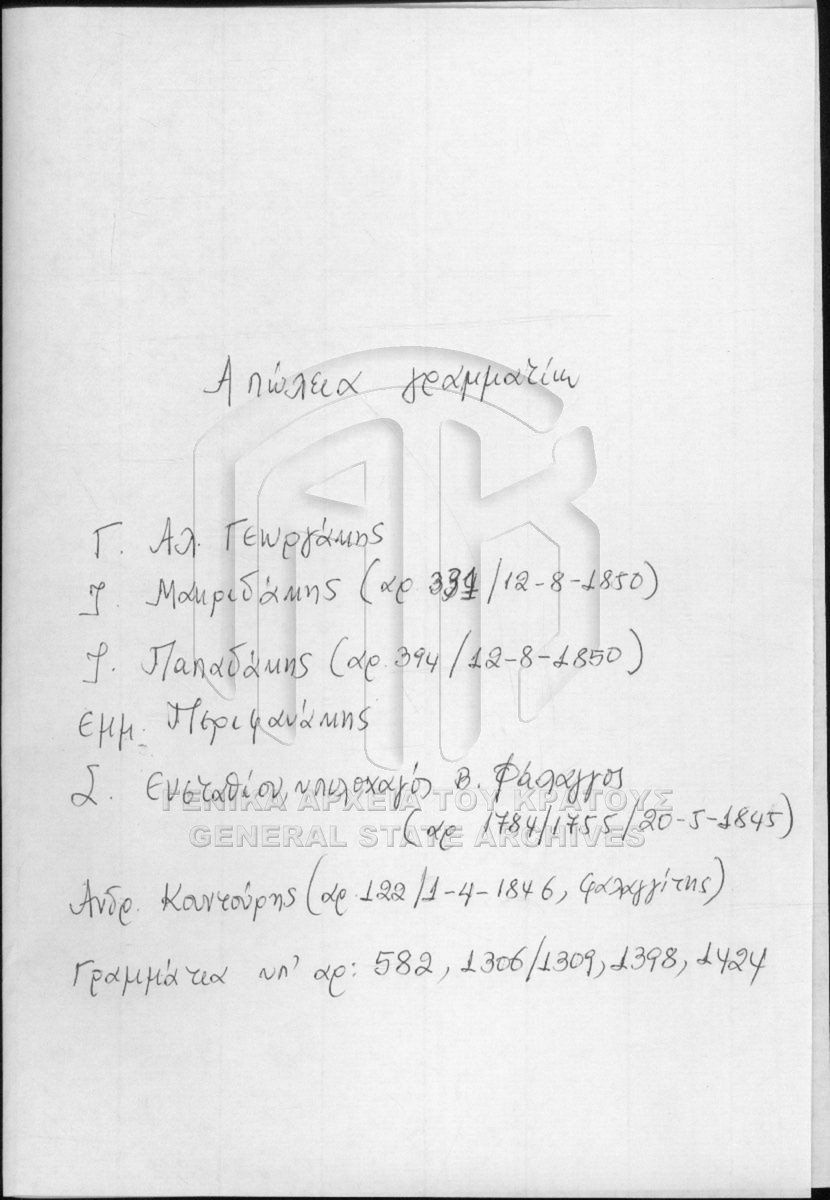 Απώλεια γραμματίων
Γ. Αλ. Γεωργάκης
Ι. Μακριδάκης (αρ. /12-8-1850)
Ι. Παπαδάκης (αρ. 394/12-8-1850)
Εμμ. Περιφανάκης
Σ. Ευσταθίου, υπολοχαγός Β. Φάλαγγος
(αρ 1784/1755/20-5-1845)
ΓΕΝΙΚΑ ΑΡΧΕΙΑ ΤΟΥ ΚΡΑΤΟΥΣ
GENERAL STATE ARCHIVES
Ανδρ. Κουτούρης (αρ. 122/1-4-1846, φαλαγγίτης)
Γραμμάτια υπ' αρ: 582, 1306/1309, 1398, 1424